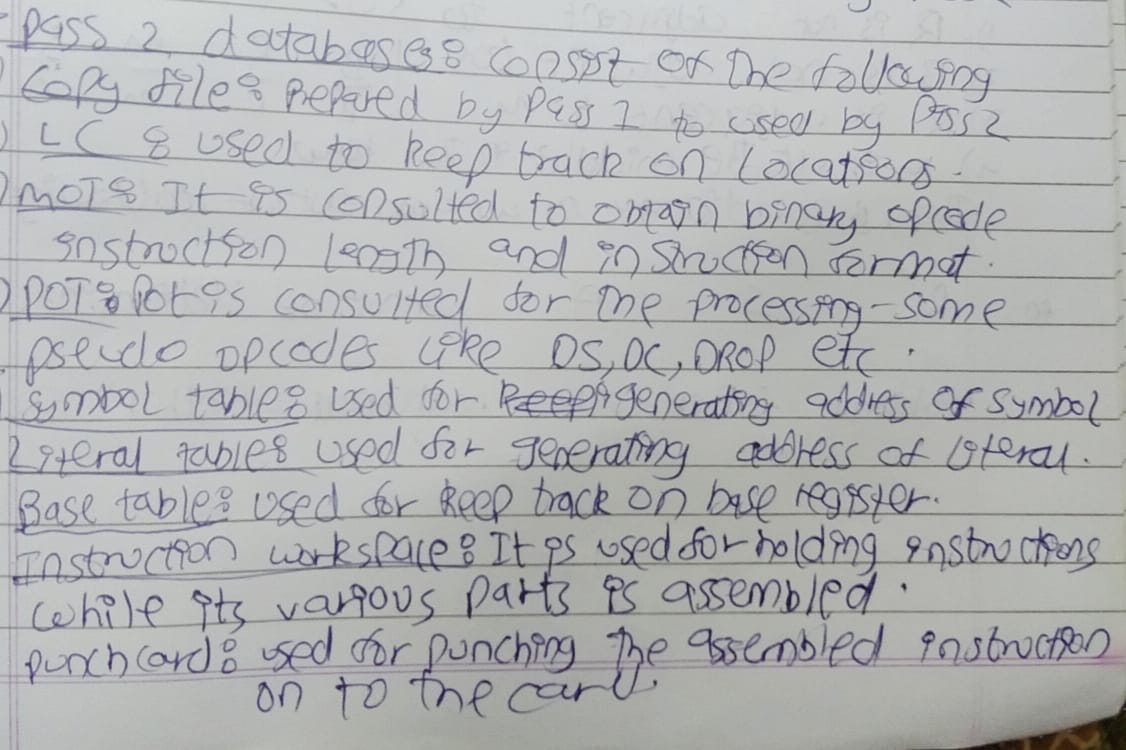 Pass 2 databases: Consist of the following
Copy file: Prepared by Pass 1 to used by Pass 2
) LC : used to keep track on locations.
) MOT: It is consulted to obtain binary opcode
instruction length and instruction format.
) POT: Pot is consulted for the processing some
pseudo opcodes like DS, DC, DROP etc.
Symbol table: used for generating address of symbol
Literal table: used for generating address of literal.
Base table: used for keep track on base register.
Instruction workspace: It is used for holding instructions
while its various parts is assembled.
punch card: used for punching the assembled instruction
on to the card.